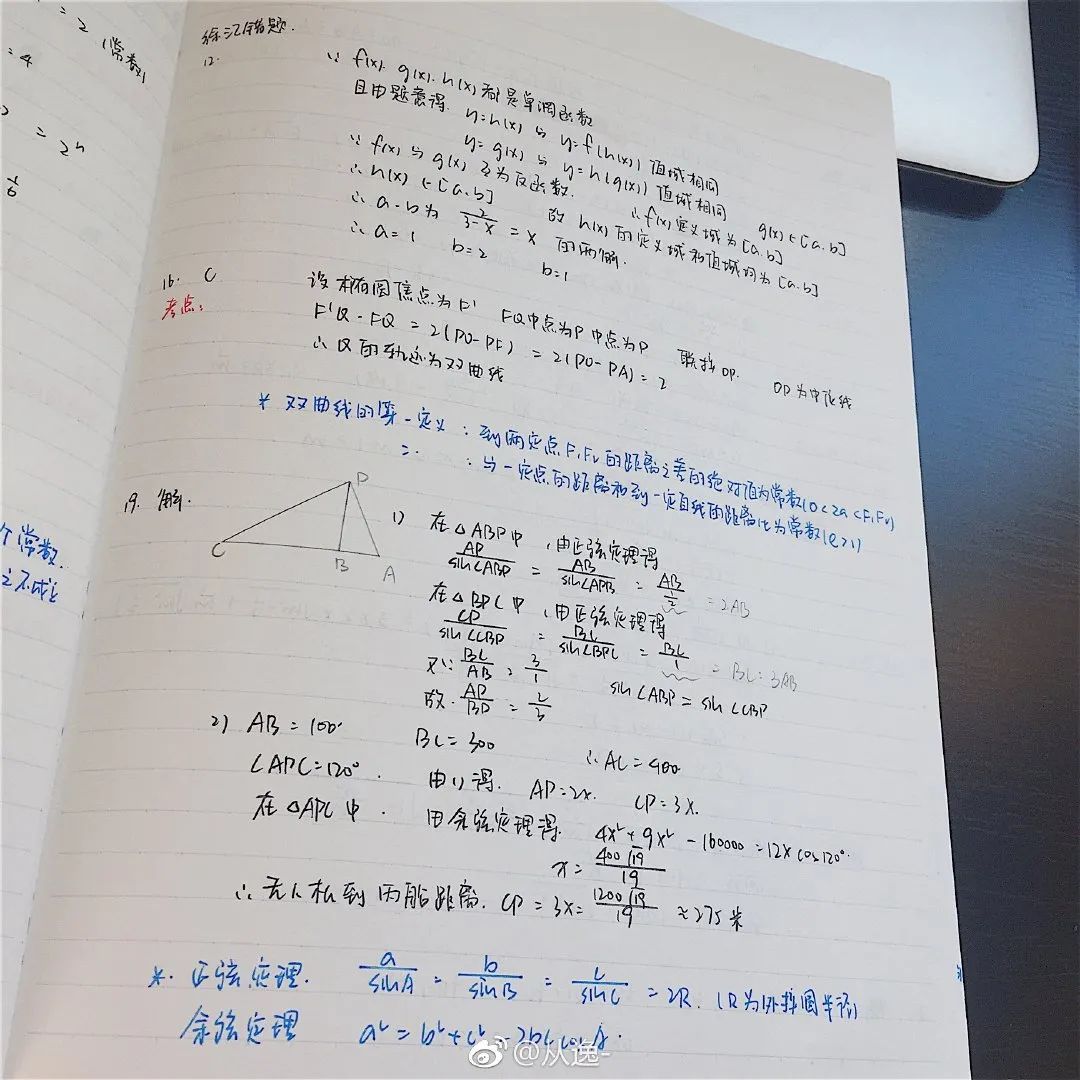 = 2 (常数)
= 4
= 2ⁿ
1/6
个常数.
之不成立
徐汇错题.
12.
∵ f(x). g(x). h(x) 都是单调函数
且由题意得. y=h(x) 与 y=f(h(x)) 值域相同
y=g(x) 与 y=h(g(x)) 值域相同
∵ f(x) 与 g(x) 互为反函数. ∴ f(x) 定义域为[a.b] g(x)∈[a.b]
∴ h(x)∈[a.b] 故 h(x) 的定义域和值域均为[a.b]
∴ a.b为 2/(3-x) = x 的两解.
∴ a=1 b=2 b=1
16. C
考点:
设椭圆焦点为F' FQ中点为P 中点为P 联接OP. OP为中位线
F'Q - FQ = 2(PO-PF) = 2(PO-PA) = 2
∴ Q的轨迹为双曲线
* 双曲线的第一定义 : 到两定点F₁F₂的距离之差的绝对值为常数(0<2a<F₁F₂)
二. : 与一定点的距离和到一定直线的距离比为常数(e>1)
19. 解.
P
C
B
A
1) 在△ABP中 , 由正弦定理得
AP/sin∠ABP = AB/sin∠APB = AB/(1/2) = 2AB
在△BPC中 , 由正弦定理得
CP/sin∠CBP = BC/sin∠BPC = BC/1 = BC = 3AB
又∵ BC/AB = 3/1 sin∠ABP = sin∠CBP
故. AP/BP = 2/3
2) AB = 100 BC = 300 ∴ AC = 400
∠APC=120°. 由1)得. AP=2x. CP=3x.
在△APC中. 由余弦定理得. 4x²+9x²-160000=12xcos120°.
x = 400√19/19
∴ 无人机到丙船距离. CP = 3x = 1200√19/19 ≈ 275米
*. 正弦定理. a/sinA = b/sinB = c/sinC = 2R. (R为外接圆半径)
余弦定理 a² = b²+c²-2bc cosA.
@从逸-